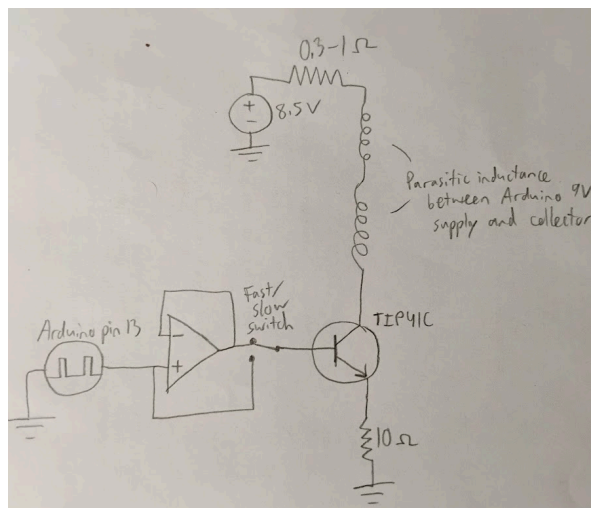 0.3-1 Ω
+
-
8.5V
Parasitic inductance
between Arduino 9V
supply and collector
Fast/
slow
switch
TIP41C
Arduino pin 13
-
+
10 Ω